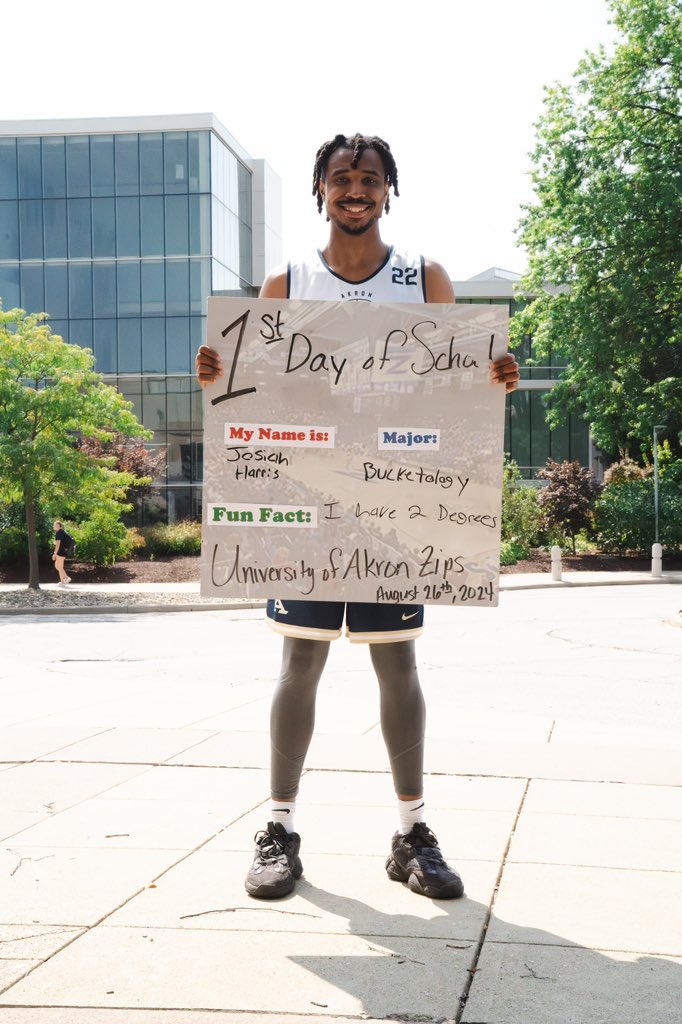 22
AKRON
1st Day of Schoo!
My Name is:
Josiah
Harris
Major:
Bucketology
Fun Fact: I have 2 Degrees
University of Akron Zips
August 26th, 2024
A